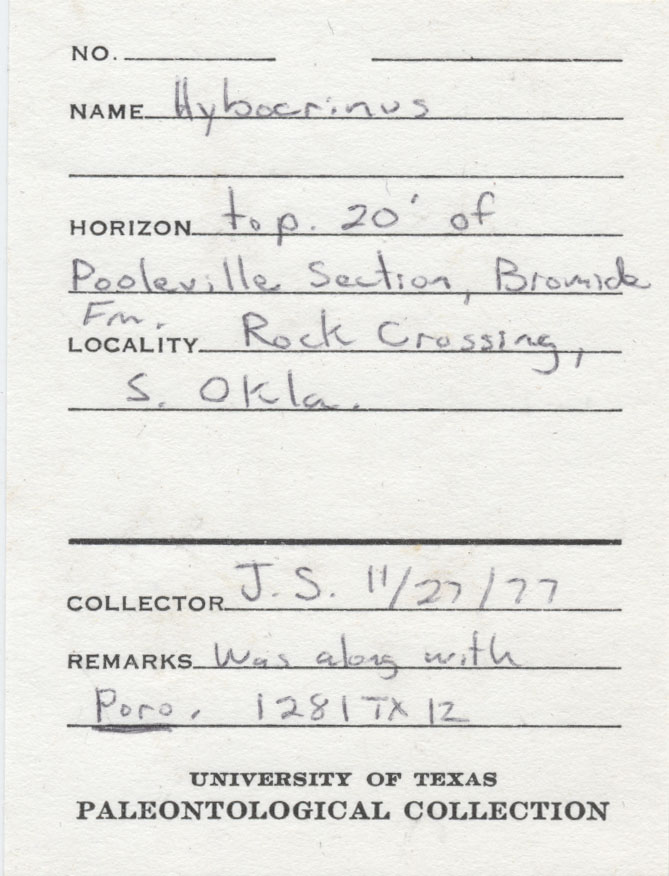 NO.
NAME Hybocrinus
HORIZON top. 20' of
Pooleville Section, Bromide
Fm.
LOCALITY Rock Crossing,
S. Okla.
COLLECTOR J.S. 11/27/77
REMARKS Was along with
Poro. 1281TX12
UNIVERSITY OF TEXAS
PALEONTOLOGICAL COLLECTION